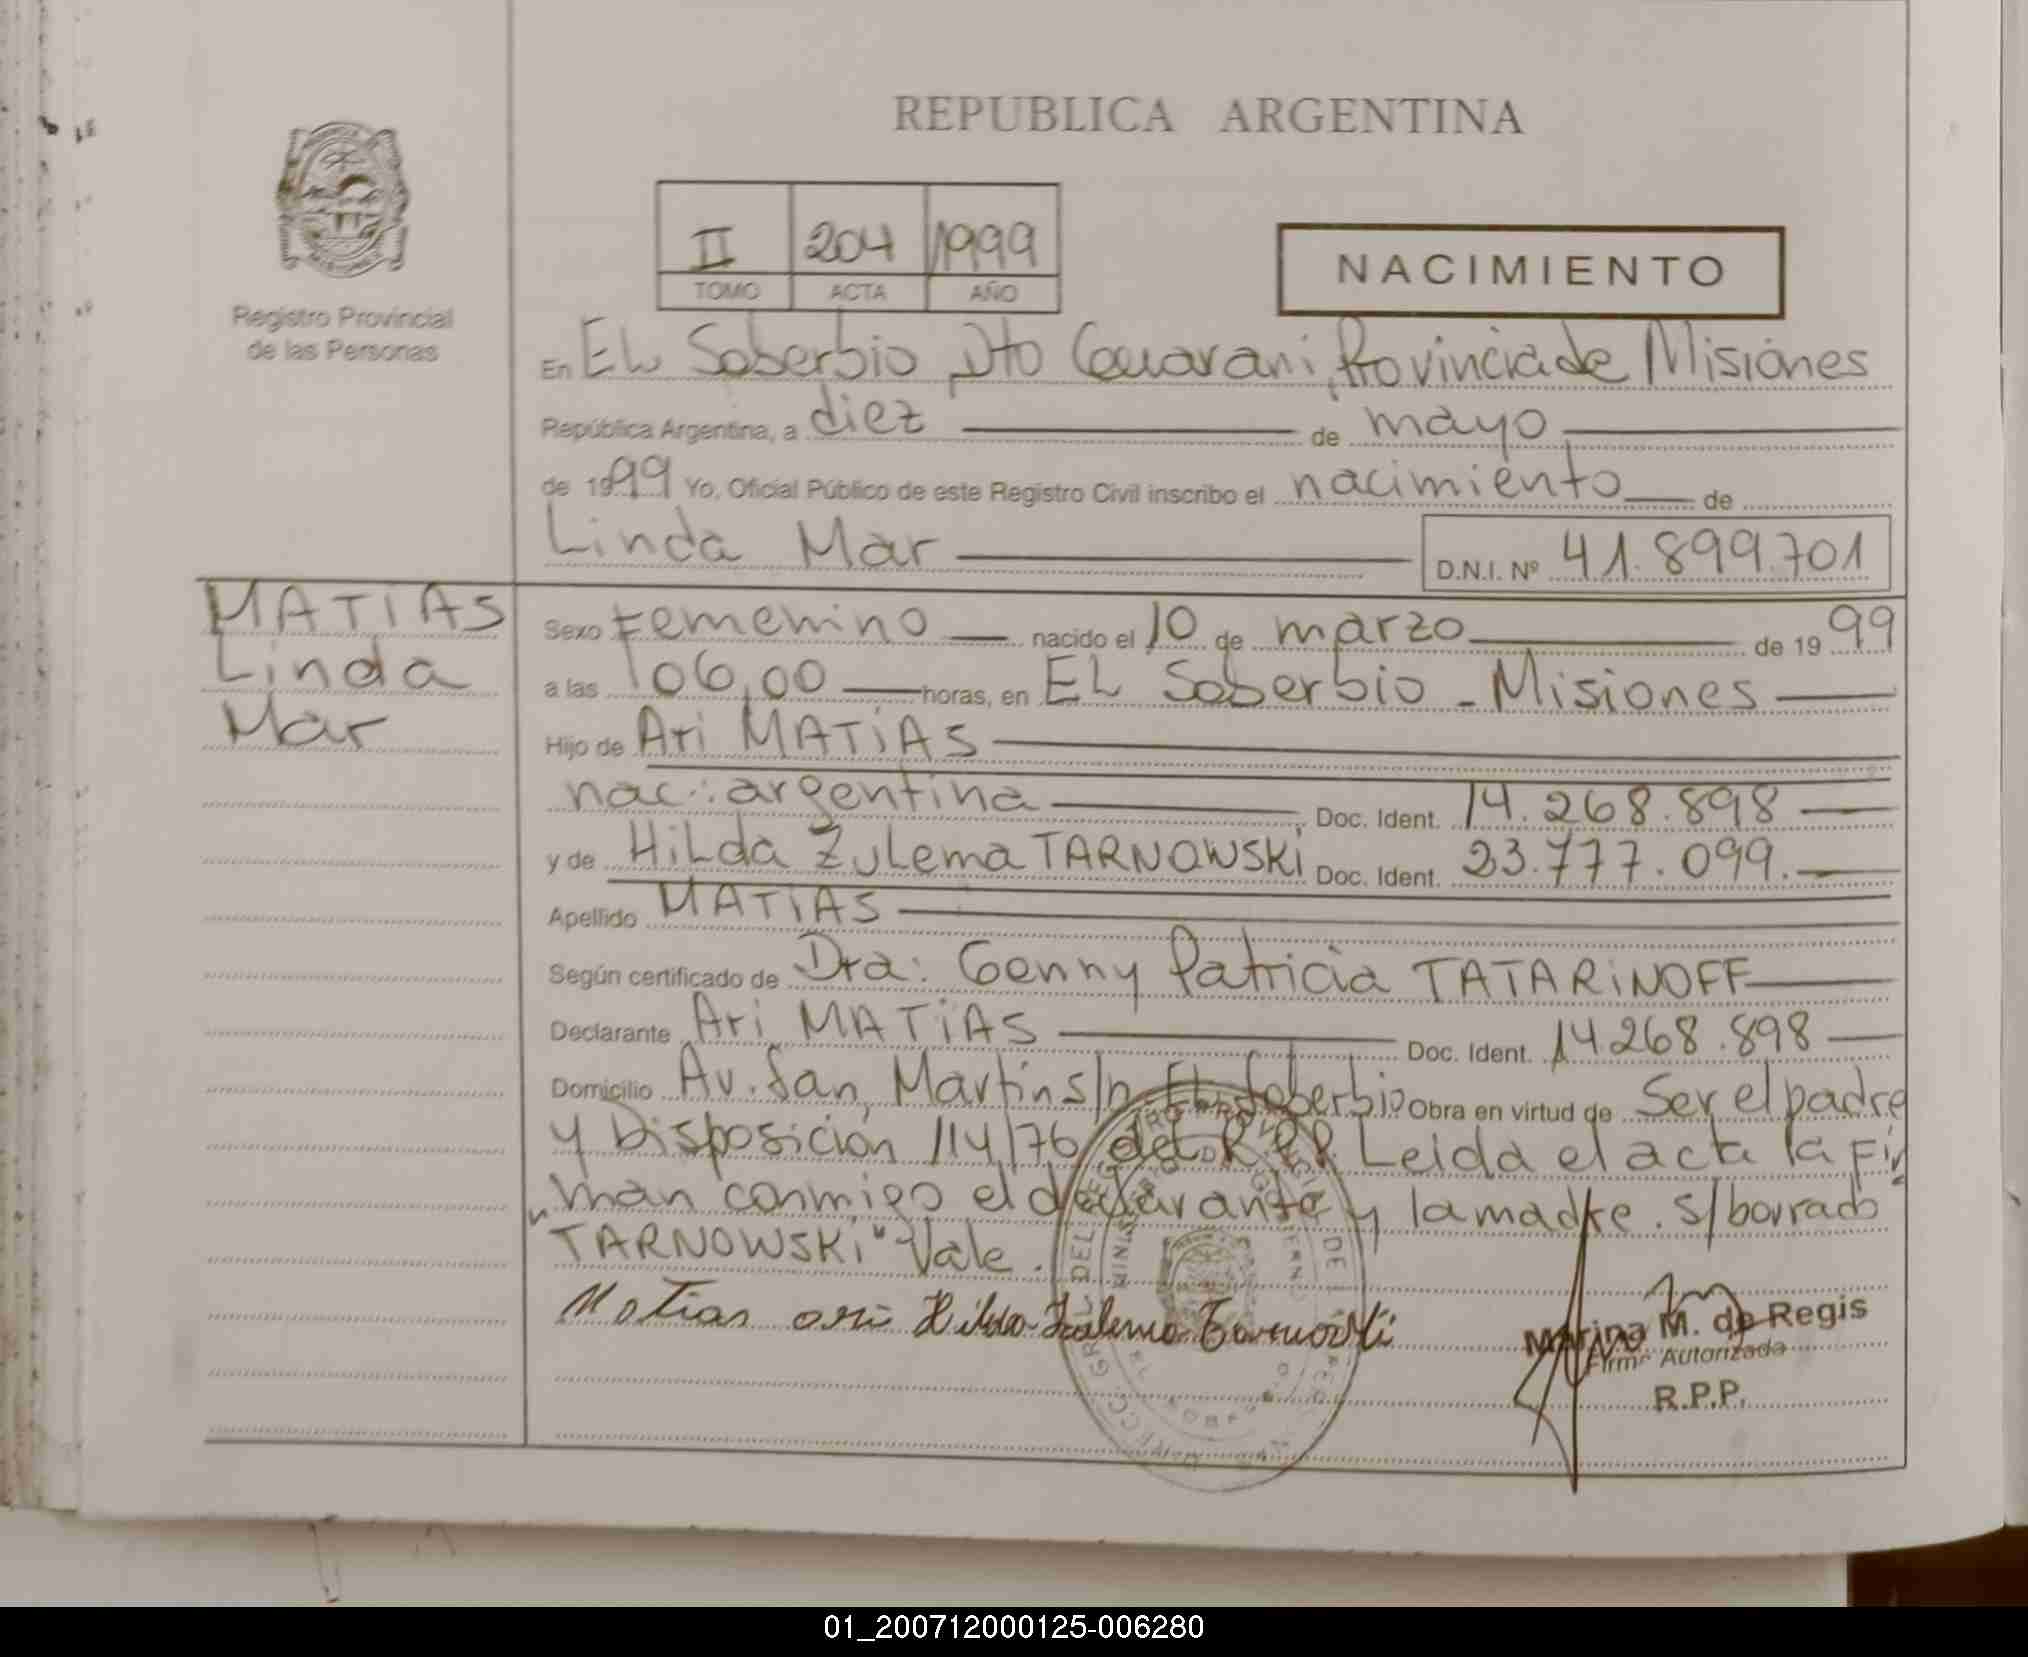 REPUBLICA ARGENTINA
II 204 1999
TOMO ACTA AÑO
NACIMIENTO
Registro Provincial
de las Personas
En EL Soberbio, Dto Guarani, Provincia de Misiones
República Argentina, a diez de mayo
de 1999 Yo, Oficial Público de este Registro Civil inscribo el nacimiento de
Linda Mar
D.N.I. Nº 41.899.701
MATIAS
Linda
Mar
Sexo Femenino nacido el 10 de marzo de 1999
a las 06,00 horas, en EL Soberbio - Misiones
Hijo de Ari MATIAS
nac: argentina Doc. Ident. 14.268.898
y de HiLda ZuLema TARNOWSKi Doc. Ident. 23.777.099.
Apellido MATIAS
Según certificado de Dra: Genny Patricia TATARINOFF
Declarante Ari MATIAS Doc. Ident. 14268.898
Domicilio Av. San Martin s/n EL Soberbio Obra en virtud de Ser el padre
y Disposición 114/76 del R.P.P. Leida el acta la fir
man conmigo el declarante y la madre. s/borrado
"TARNOWSKi" Vale.
Matias Ari Hilda Zulema Tarnowski
Marina M. de Regis
Firma Autorizada
R.P.P.
01_200712000125-006280